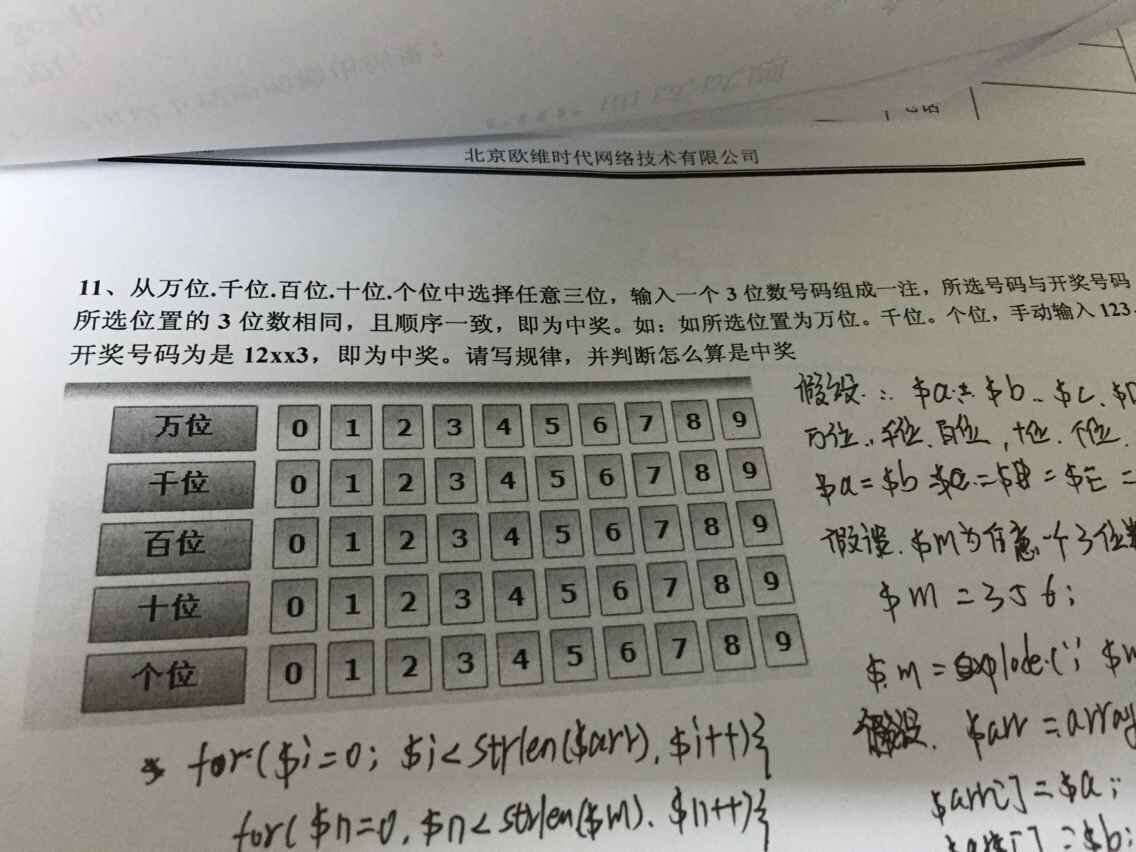 北京欧维时代网络技术有限公司
11、从万位.千位.百位.十位.个位中选择任意三位，输入一个 3 位数号码组成一注，所选号码与开奖号码
所选位置的 3 位数相同，且顺序一致，即为中奖。如：如所选位置为万位。千位。个位，手动输入 123.
开奖号码为是 12xx3，即为中奖。请写规律，并判断怎么算是中奖
万位 0 1 2 3 4 5 6 7 8 9
千位 0 1 2 3 4 5 6 7 8 9
百位 0 1 2 3 4 5 6 7 8 9
十位 0 1 2 3 4 5 6 7 8 9
个位 0 1 2 3 4 5 6 7 8 9
假设: $a $b $c
万位 千位 百位 十位 个位
$a = $b
假设 $m为任意一个3位
$m = 356;
$m = explode('',
假设 $arr = array
$arr[] = $a;
$b;
for($i=0; $i<strlen($arr), $i++){
for($n=0, $n<strlen($m). $n++){